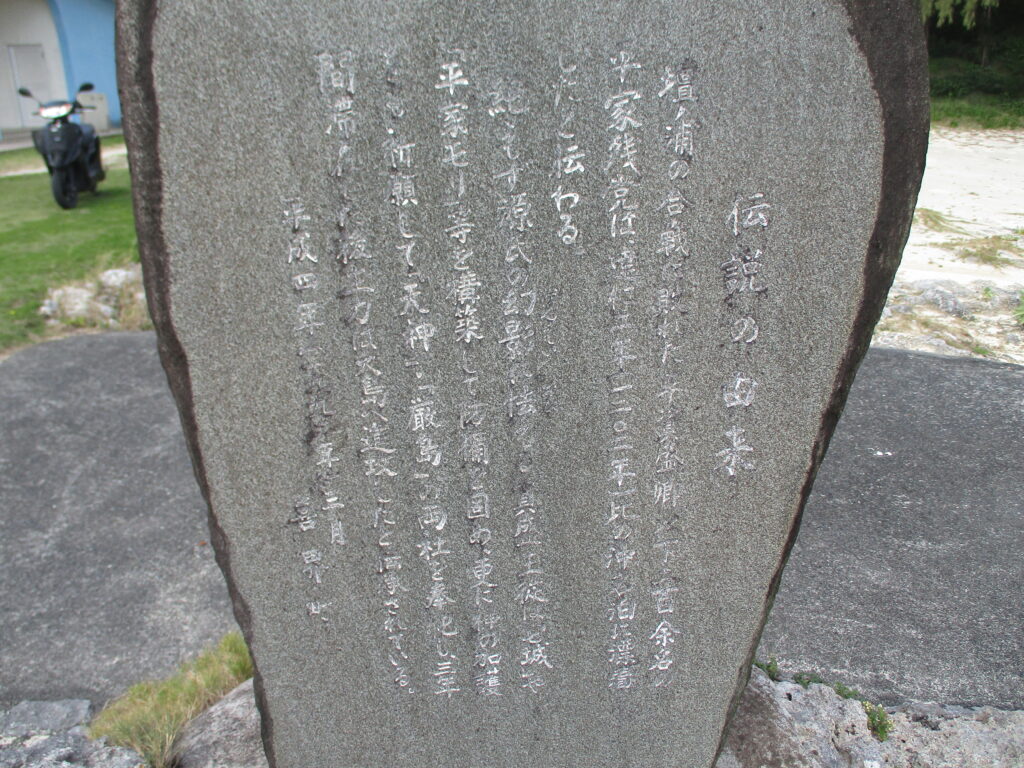 伝説の由来
壇ノ浦の合戦に敗れた 盛卿以下二百余名の
平家残党は、建仁二年(一二〇二年)此の沖名泊に漂着
したと伝わる。
絶えず源氏の幻影に 主従は 城や
平家森等を構築して防備を固め、更に神の加護
祈願して「天神」「厳島」の両社を奉祀し、三年
間滞留した後 大島へ進攻したと伝承されている。
平成四年 三月
喜界町